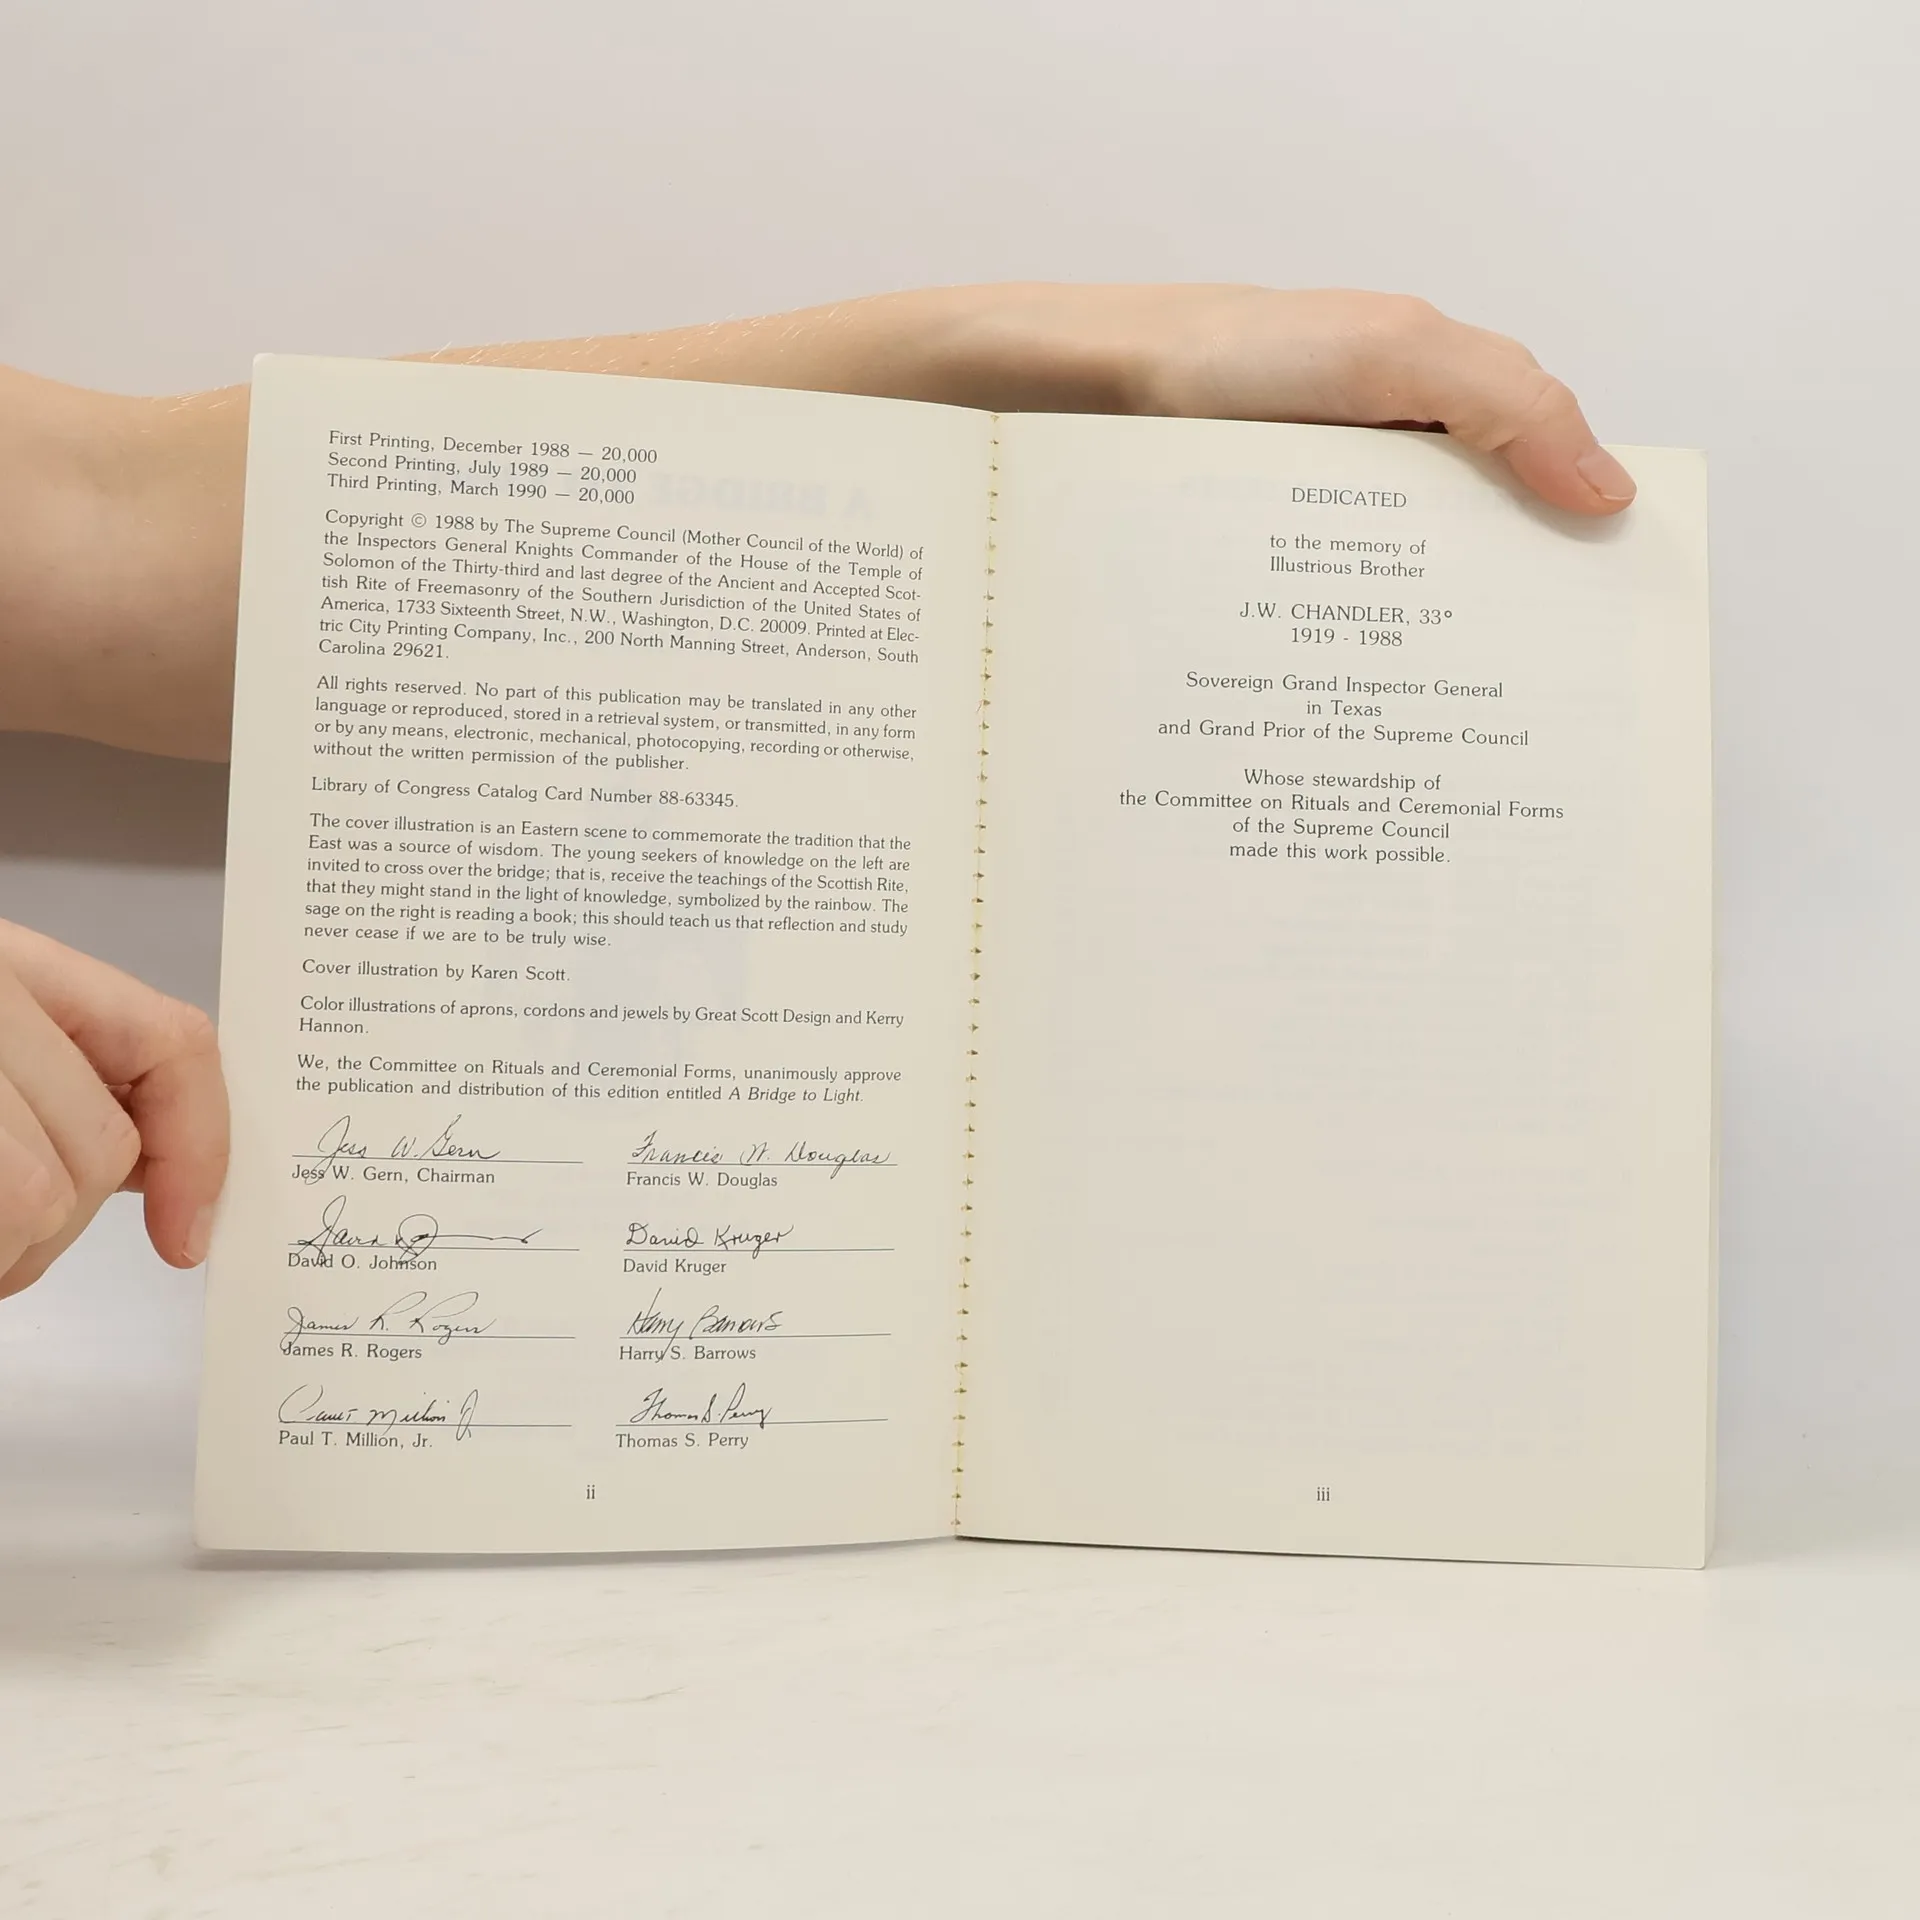 First Printing, December 1988 — 20,000
Second Printing, July 1989 — 20,000
Third Printing, March 1990 — 20,000
Copyright © 1988 by The Supreme Council (Mother Council of the World) of
the Inspectors General Knights Commander of the House of the Temple of
Solomon of the Thirty-third and last degree of the Ancient and Accepted Scot-
tish Rite of Freemasonry of the Southern Jurisdiction of the United States of
America, 1733 Sixteenth Street, N.W., Washington, D.C. 20009. Printed at Elec-
tric City Printing Company, Inc., 200 North Manning Street, Anderson, South
Carolina 29621.
All rights reserved. No part of this publication may be translated in any other
language or reproduced, stored in a retrieval system, or transmitted, in any form
or by any means, electronic, mechanical, photocopying, recording or otherwise,
without the written permission of the publisher.
Library of Congress Catalog Card Number 88-63345.
The cover illustration is an Eastern scene to commemorate the tradition that the
East was a source of wisdom. The young seekers of knowledge on the left are
invited to cross over the bridge; that is, receive the teachings of the Scottish Rite,
that they might stand in the light of knowledge, symbolized by the rainbow. The
sage on the right is reading a book; this should teach us that reflection and study
never cease if we are to be truly wise.
Cover illustration by Karen Scott.
Color illustrations of aprons, cordons and jewels by Great Scott Design and Kerry
Hannon.
We, the Committee on Rituals and Ceremonial Forms, unanimously approve
the publication and distribution of this edition entitled A Bridge to Light.
Jess W. Gern
Jess W. Gern, Chairman
Francis W. Douglas
Francis W. Douglas
David O. Johnson
David Kruger
David Kruger
James R. Rogers
James R. Rogers
Harry Barrows
Harry S. Barrows
Paul T Million Jr
Paul T. Million, Jr.
Thomas S. Perry
Thomas S. Perry
ii
DEDICATED
to the memory of
Illustrious Brother
J.W. CHANDLER, 33°
1919 - 1988
Sovereign Grand Inspector General
in Texas
and Grand Prior of the Supreme Council
Whose stewardship of
the Committee on Rituals and Ceremonial Forms
of the Supreme Council
made this work possible.
iii